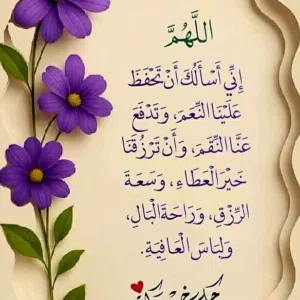 اللَّهُمَّ
إِنِّي أَسْأَلُكَ أَنْ تَحْفَظَ
عَلَيْنَا النِّعَمَ، وَتَدْفَعَ
عَنَّا النِّقَمَ، وَأَنْ تَرْزُقَنَا
خَيْرَ الْعَطَاءِ، وَسَعَةَ
الرِّزْقِ، وَرَاحَةَ الْبَالِ،
وَلِبَاسَ الْعَافِيَةِ.